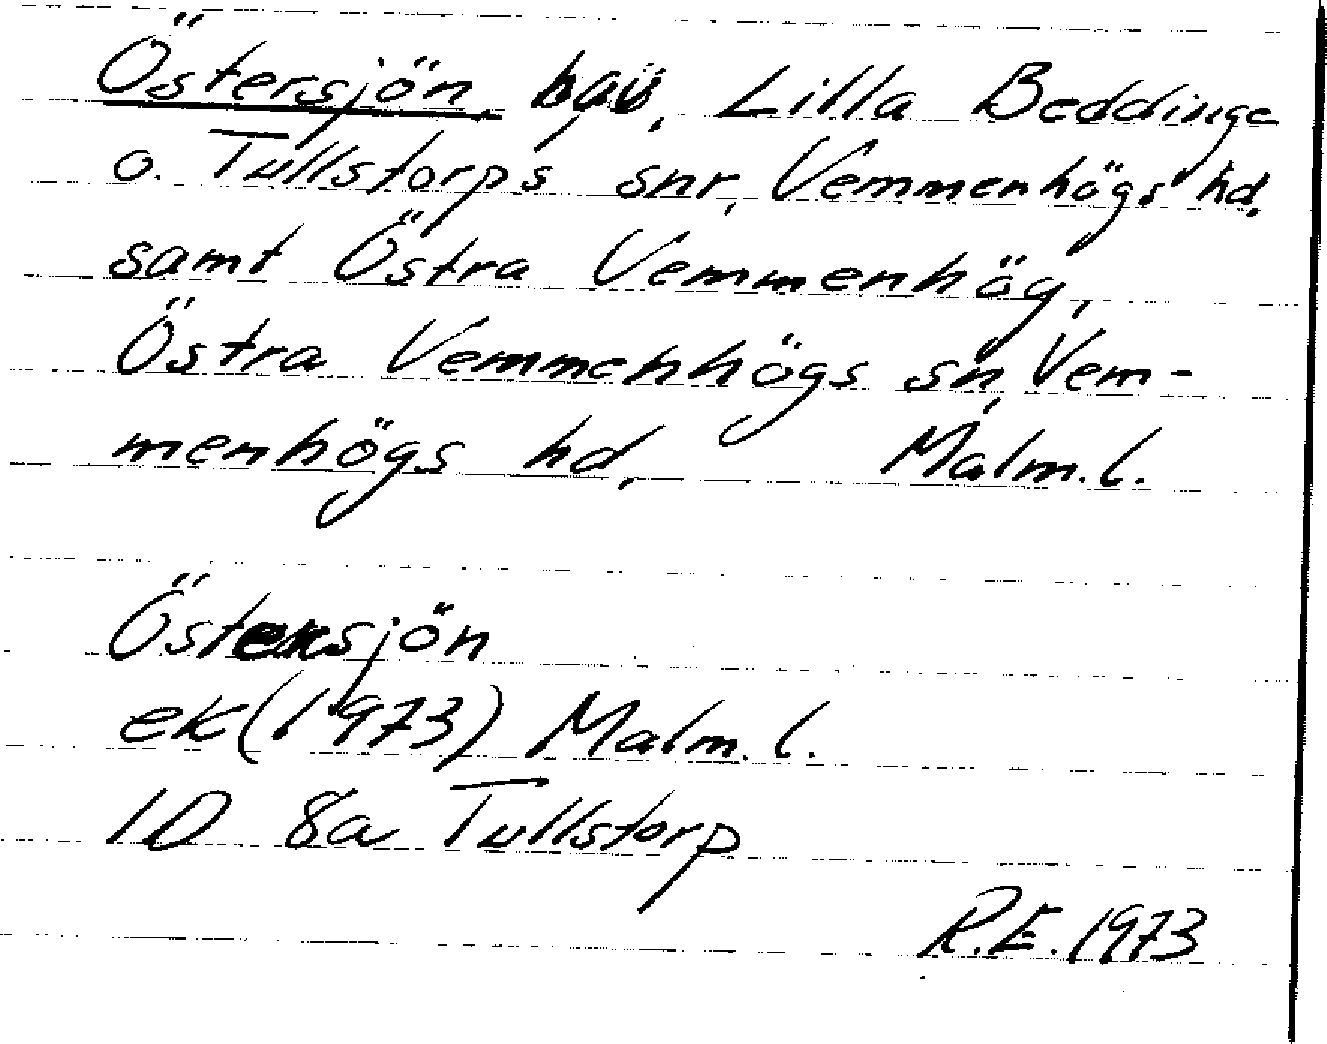 Östersjön, hav, Lilla Beddinge
o. Tullstorps snr, Vemmenhögs hd,
samt Östra Vemmenhög,
Östra Vemmenhögs sn, Vem-
menhögs hd, Malm. l.
Östersjön
ek (1973) Malm. l.
1D 8a Tullstorp
R.E. 1973